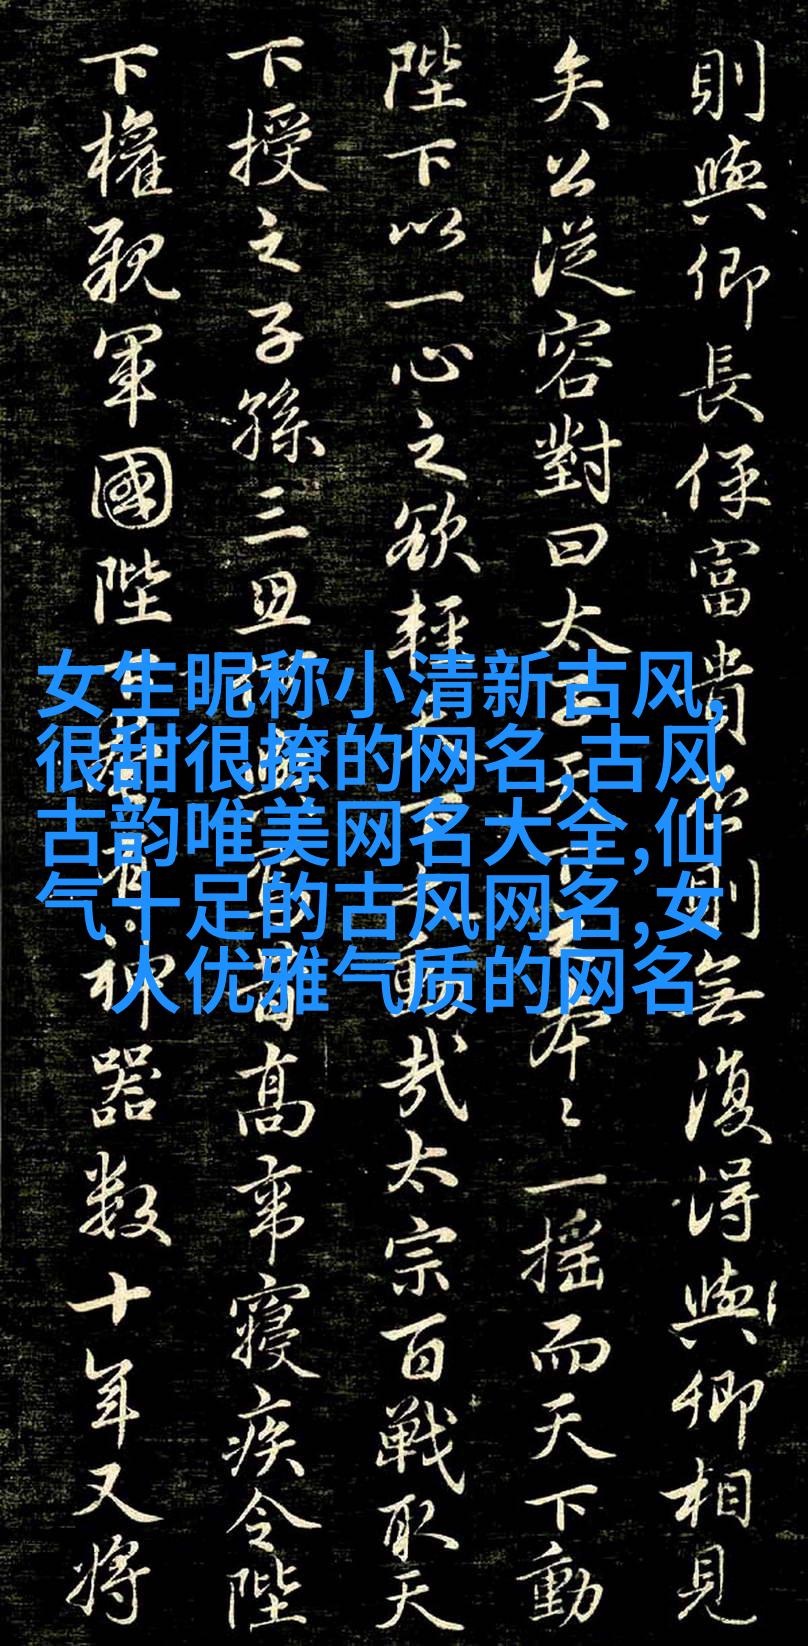 則與卿長保富貴則無復得與卿相見
矣公從容對曰太子天下之本〻一摇而天下動
陛下以一心之欲輕天下動哉太宗百戰取天
下授之子孫三世高帝寢疾令陛
下權親軍國陛下有神器数十年又將
女生昵称小清新古风,
很甜很撩的网名,古风
古韵唯美网名大全,仙
气十足的古风网名,女
人优雅气质的网名